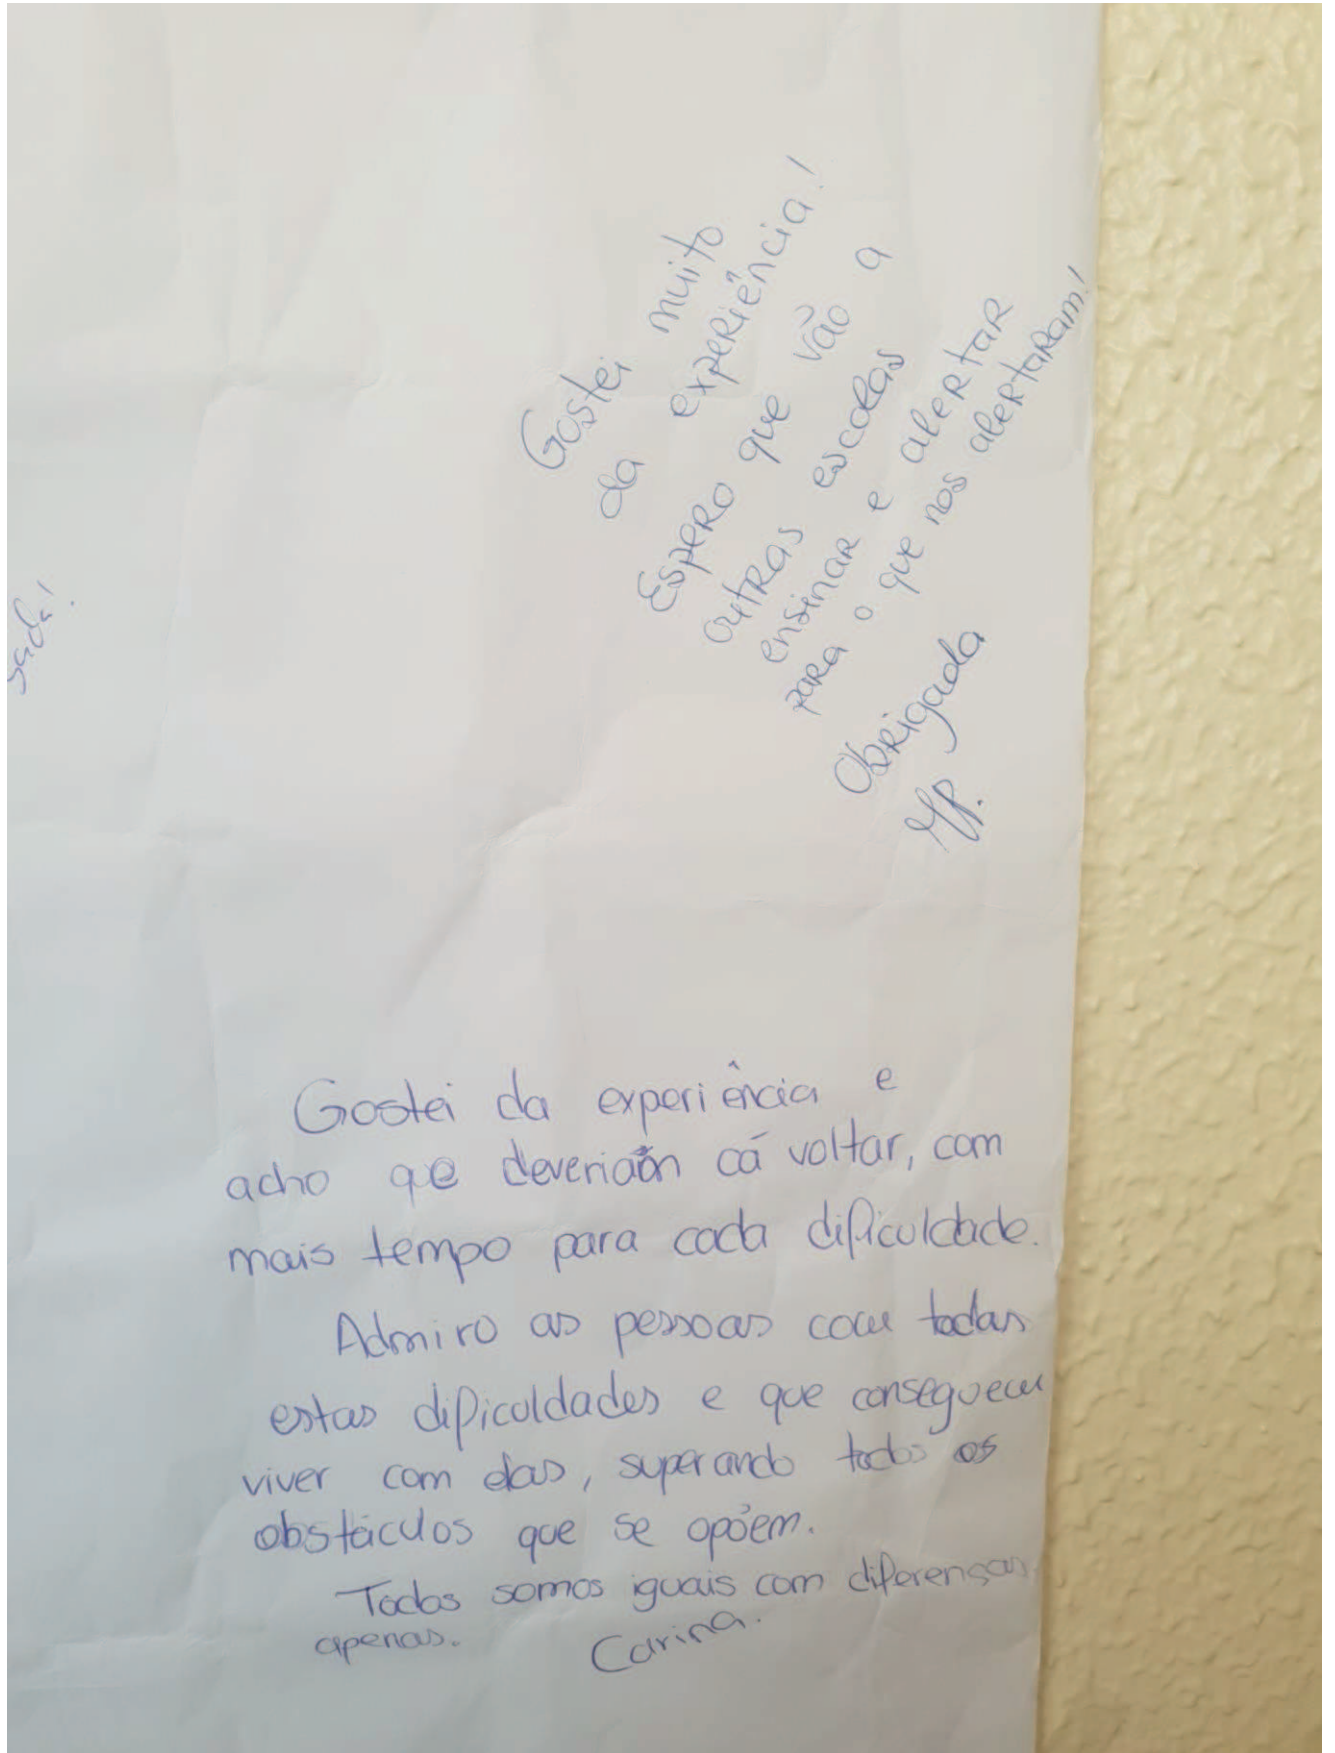 Gostei muito
da experiência!
Espero que vão a
outras escolas
ensinar e alertar
para o que nos alertaram!
Obrigada
Gostei da experiência e
acho que deveriam cá voltar, com
mais tempo para cada dificuldade.
Admiro as pessoas com todas
estas dificuldades e que conseguem
viver com elas, superando todos os
obstáculos que se opõem.
Todos somos iguais com diferenças
apenas. Carina.